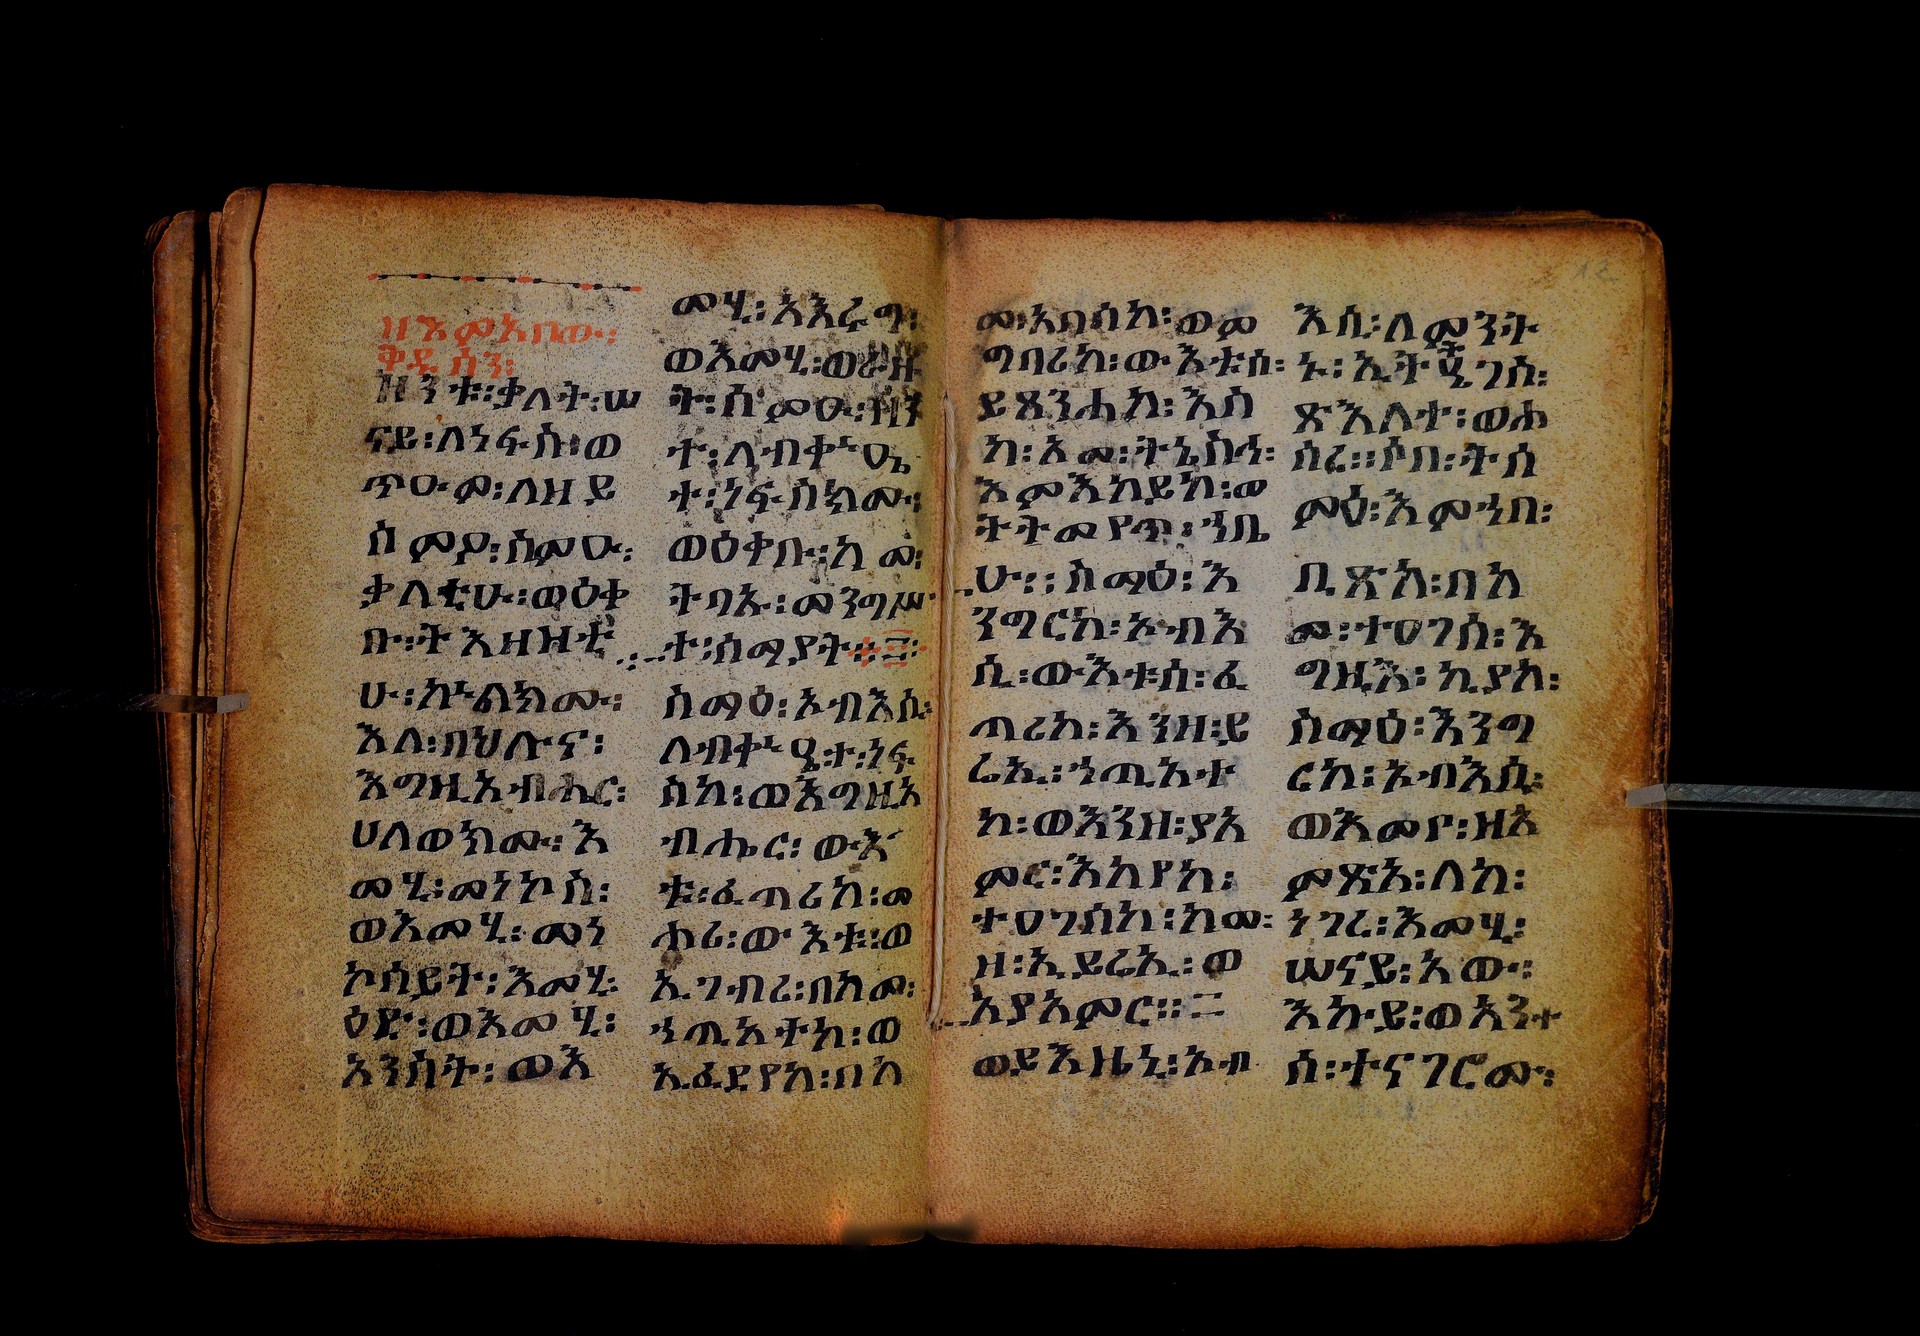 ዘእምአበው፡
ቅዱሳን፡
ዝንቱ፡ቃለት፡ሠ
ናይ፡ለነፍስ፡ወ
ጥዑም፡ለዘይ
ሰምዖ፡ስምዑ፡
ቃለቲሁ፡ወዕቀ
ቡ፡ትእዛዛቲ
ሁ፡ኵልክሙ፡
እለ፡በህሉና፡
እግዚአብሔር፡
ሀለወክሙ፡እ
መሂ፡መነኮስ፡
ወእመሂ፡መነ
ኮሳይት፡እመሂ፡
ዕድ፡ወእመሂ፡
አንስት፡ወእ
መሂ፡አእሩግ፡
ወእመሂ፡ወራዙ
ት፡ስምዑ፡
ተ፡ለብቍዔ
ተ፡ነፍስክሙ፡
ወዕቀቡ፡ከመ፡
ትባኡ፡መንግሥ
ተ፡ሰማያት፡
ስማዕ፡ኦብእሲ፡
ለብቍዔተ፡ነፍ
ስከ፡ወእግዚአ
ብሔር፡ውእ
ቱ፡ፈጣሪከ፡መ
ሐሪ፡ውእቱ፡ወ
ኢገብረ፡በከመ፡
ኀጢአትከ፡ወ
ኢፈደየከ፡በከ
መ፡አበሳከ፡ወም
ግባሪከ፡ውእቱሰ፡
ይጸንሐከ፡እስ
ከ፡አመ፡ትኔስሕ፡
እምእከይከ፡ወ
ትትመየጥ፡ኀቤ
ሁ፡፡ስማዕ፡እ
ንግርከ፡ኦብእ
ሲ፡ውእቱሰ፡ፈ
ጣሪከ፡እንዘ፡ይ
ሬኢ፡ኀጢአተ
ከ፡ወእንዘ፡ያአ
ምር፡እከየከ፡
ተዐገሰከ፡ከመ፡
ዘ፡ኢይሬኢ፡ወ
ኢያአምር፡፡
ወይእዜኒ፡ኦብ
እሲ፡ለምንት
ኑ፡ኢትትዔገስ፡
ጽእለተ፡ወሐ
ሰረ፡፡ሶበ፡ትሰ
ምዕ፡እምኀበ፡
ቢጽከ፡በከ
መ፡ተዐገሰ፡እ
ግዚእ፡ኪያከ፡
ስማዕ፡እንግ
ርከ፡ኦብእሲ፡
ወእመቦ፡ዘአ
ምጽአ፡ለከ፡
ነገረ፡እመሂ፡
ሠናይ፡አው፡
እኩይ፡ወአንተ
ሰ፡ተናገሮሙ፡